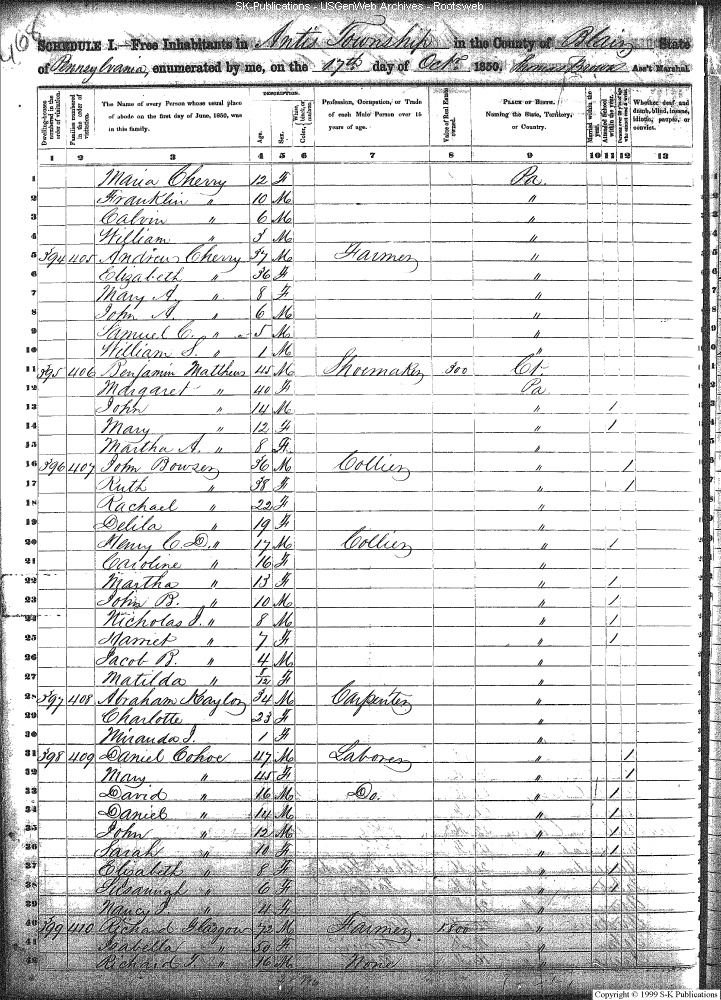 SK-Publications - USGenWeb Archives - Rootsweb
468
SCHEDULE I.—Free Inhabitants in Antis Township in the County of Blair State
of Pennsylvania, enumerated by me, on the 17th day of Octr 1850. Ass't Marshal.
Dwelling-houses numbered in the order of visitation. Families numbered in the order of visitation. The Name of every Person whose usual place of abode on the first day of June, 1850, was in this family. DESCRIPTION. Age. Sex. Color, White, black, or mulatto. Profession, Occupation, or Trade of each Male Person over 15 years of age. Value of Real Estate owned. PLACE OF BIRTH. Naming the State, Territory, or Country. Married within the year. Attended School within the year. Whether deaf and dumb, blind, insane, idiotic, pauper, or convict.
1 2 3 4 5 6 7 8 9 10 11 12 13
1 Maria Cherry 12 F Pa
2 Franklin " 10 M "
3 Calvin " 6 M "
4 William " 3 M "
5 394 405 Andrew Cherry 37 M Farmer "
6 Elizabeth " 36 F "
7 Mary A. " 8 F "
8 John A. " 6 M "
9 Samuel C. " 5 M "
10 William S. " 1 M "
11 395 406 Benjamin Matthews 45 M Shoemaker 300 Ct.
12 Margaret " 40 F Pa
13 John " 14 M " 1
14 Mary " 12 F " 1
15 Martha A. " 8 F "
16 396 407 John Bowser 36 M Collier " 1
17 Ruth " 38 F " 1
18 Rachael " 22 F "
19 Delila " 19 F "
20 Henry C. D. " 17 M Collier " 1
21 Caroline " 16 F "
22 Martha " 13 F " 1
23 John B. " 10 M " 1
24 Nicholas J. " 8 M " 1
25 Harriet " 7 F " 1
26 Jacob R. " 4 M "
27 Matilda " 8/12 F "
28 397 408 Abraham Kaylor 34 M Carpenter "
29 Charlotte 23 F "
30 Miranda J. 1 F "
31 398 409 Daniel Cohoe 47 M Laborer " 1
32 Mary " 45 F " 1
33 David " 16 M Do. " 1
34 Daniel " 14 M " 1
35 John " 12 M " 1
36 Sarah " 10 F " 1
37 Elizabeth " 8 F " 1
38 Susannah " 6 F " 1
39 Nancy J. " 4 F "
40 399 410 Richard Glasgow 72 M Farmer 1800 "
41 Isabella " 50 F "
42 Richard T. " 16 M None "
Copyright © 1999 S-K Publications